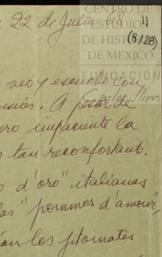 22 de Julio
(8/28)
CENTRO DE
ESTUDIOS
DE HISTORIA
DE MEXICO
FUNDACIÓN
veo y escucho con
A pesar de
impaciente la
tan reconfortant.
d'oro" italianas
las "pommes d'amour,
los jitomates